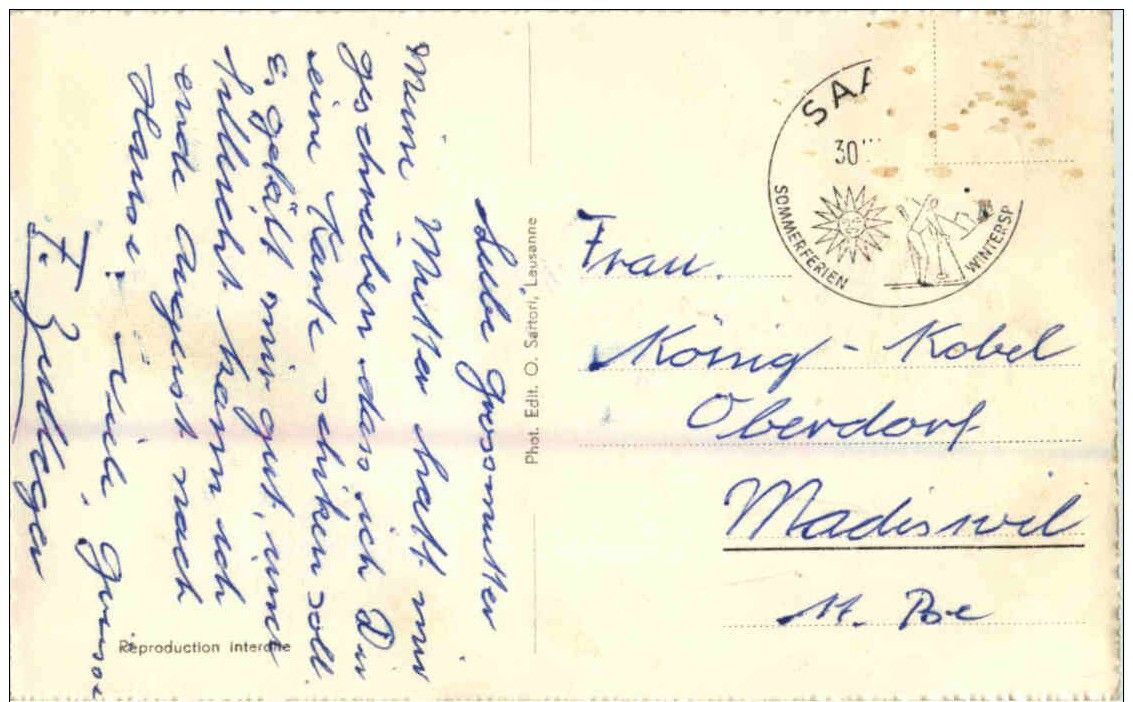 Liebe Grossmutter
Meine Mutter hatt mir
geschrieben dass ich Dir
eine Karte schiken soll.
Es gefällt mir gut, und
villeicht kam ich
ende August nach
Hause, viele Grüsse
F. Zulliger
Reproduction interdite
Phot. Edit. O. Sartori, Lausanne
SAA
30
SOMMERFERIEN
WINTERSP
Frau.
König - Kobel
Oberdorf
Madiswil
Kt. Be